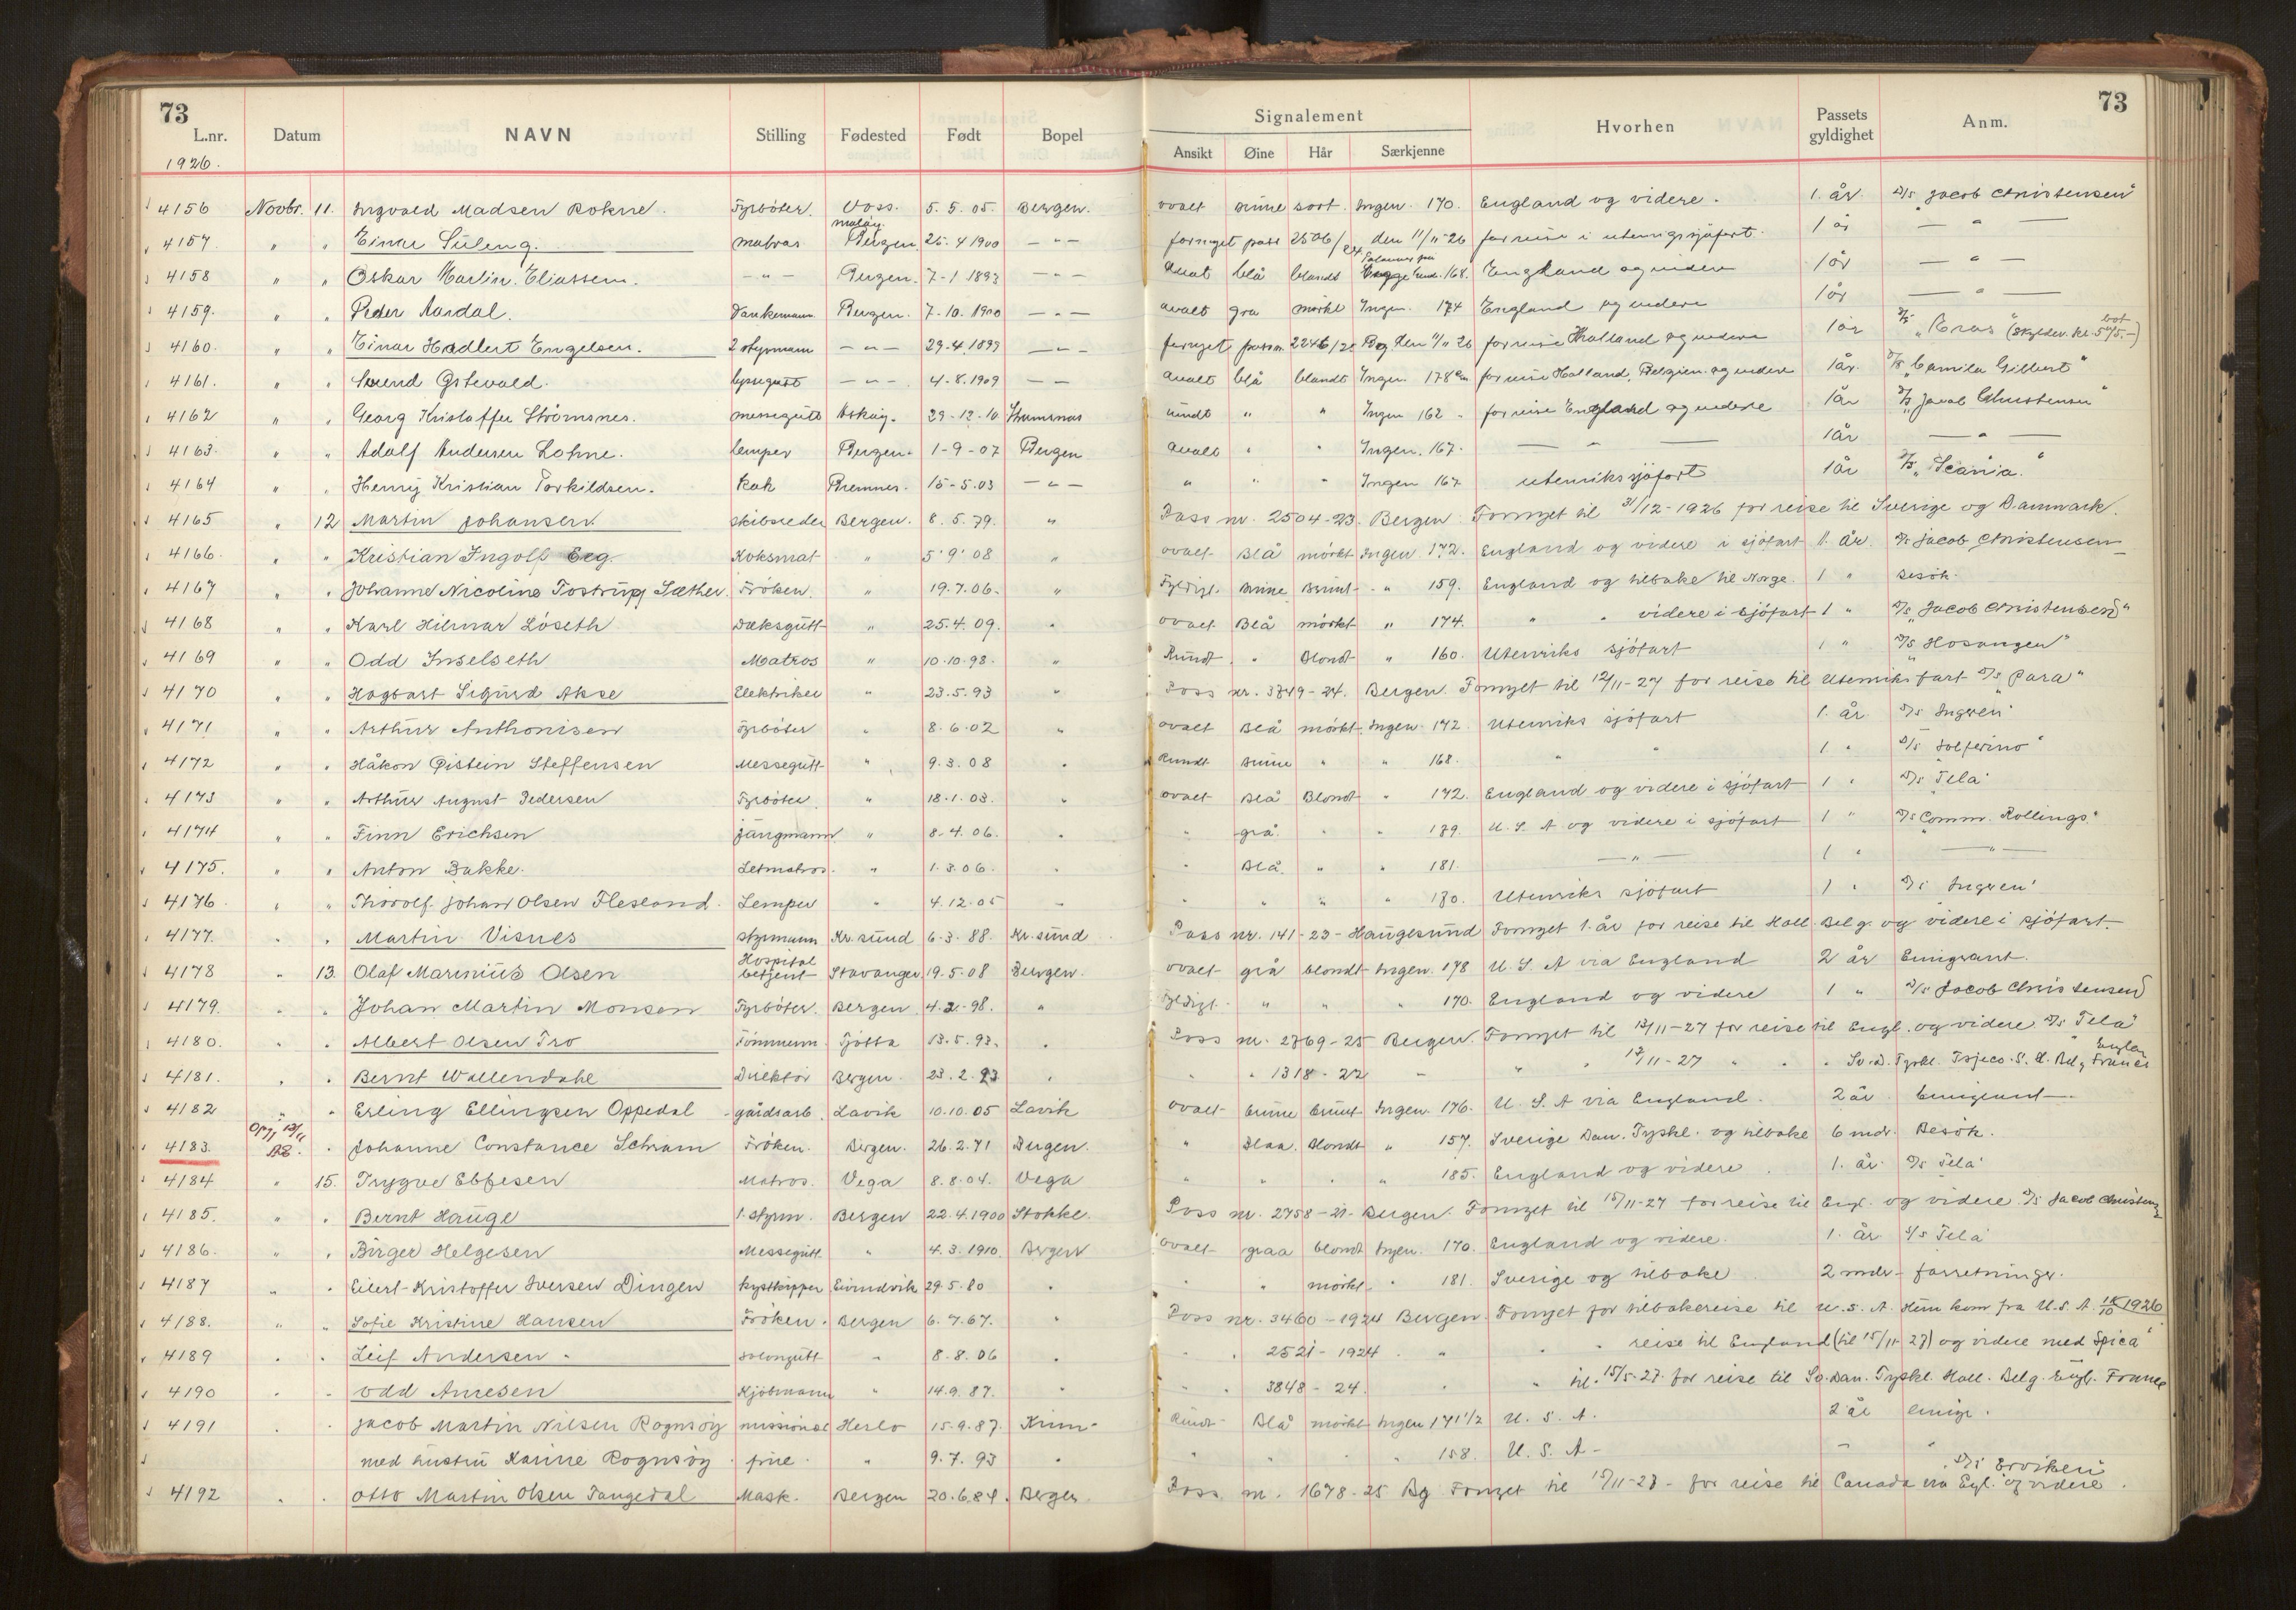 73
73
L.nr. Datum NAVN Stilling Fødested Født Bopel Signalement Ansikt Øine Hår Særkjenne Hvorhen Passets gyldighet Anm.
1926.
4156 Novbr. 11. Ingvald Madsen Rokne. Fyrböter. Voss. 5.5.05. Bergen. ovalt brune sort. Ingen. 170. England og videre. 1. år. D/S "Jacob Christensen"
4157 " " Einar matros Bergen 25.4 1900 — " — fornyet pass 2506/ den 11/11-26 for reise i utenrigssjøfart. 1 år — " —
4158 " " Oskar Martin Eliassen. — " — Bergen. 7-1 1893 — " — ovalt blå blondt 168. England og videre 1 år — " —
4159. " " Peder Aardal. Bergen. 7-10. 1900 — " — ovalt grå mørkt Ingen. 174 England og videre 1 år — " —
4160. " " Einar Engelsen. 2 styrmann — " — 29.4.1899 — " — fornyet 2246/25 Bg. den 11/11 26 for reise Holland og videre 1 år
4161. " " byssegutt — " — 4-8.1909 — " — ovalt blå blondt Ingen 178 cm. for reise Holland, Belgien og videre 1 år. D/S "Camilla Gilbert"
4162 " " Georg Kristoffer Strömsnes. messegutt Askøy. 29-12-10 Strømsnes rundt " " Ingen 162 - for reise England og videre 1 år D/S "Jacob Christensen"
4163. " " Adolf Andersen Lohne. lemper Bergen. 1-9-07 Bergen ovalt " " Ingen. 167. — " — 1 år — " —
4164 " " Henrij Kristian Torkildsen. kok Bremnes. 15-5.03 — " — " " " Ingen 167 utenrikssjøfart 1 år D/S "Scania."
4165 " 12 Martin Johansen. skibsreder Bergen. 8.5.79. " Pass nr. 2504-23. Bergen. Fornyet til 31/12-1926 for reise til Sverige og Danmark.
4166. " " Kristian Ingolf Eeg. Koksmat " 5.9.08 " ovalt Blå mörkt Ingen 172. England og videre i sjöfart 1. år. D/S Jacob Christensen
4167 " " Johanne Nicoline Tostrup Sæther. Fröken. " 19.7.06. " Fyldigt. Brune Brunt " 159. England og tilbake til Norge. 1 " Besök.
4168 " " Karl Hilmar Löseth Dæksgutt " 25.4.09. " ovalt Blå mörkt " 174. " " videre i sjöfart 1 " D/S "Jacob Christensen"
4169 " " Odd Inselseth Matros " 10.10.98. " Rundt " Blondt " 160. Utenriks sjöfart 1 " D/S "Hosangen"
4170 " " Hagbart Sigurd Akse Elektriker " 23.5.93 " Pass nr. 3849-24. Bergen. Fornyet til 12/11-27 for reise til utenriksfart D/S "Para"
4171 " " Arthur Anthonisen Fyrböter " 8.6.02 " ovalt Blå mörkt Ingen. 172. Utenriks sjöfart 1. år. D/S Ingren
4172 " " Håkon Öistein Steffensen Messegutt " 9.3.08 " Rundt Brune " " 168. " " 1 " D/S "Solferino"
4173 " " Arthur August Pedersen Fyrböter " 18.1.03. " ovalt Blå Blondt " 172. England og videre i sjöfart 1 " D/S Tela
4174 " " Finn Erichsen jungmann " 8-4.06. " " grå. " " 189. U.S.A og videre i sjöfart 1 " D/S "Comm. Rollings."
4175. " " Anton Bakke. Letmatros. " 1.3.06. " " Blå. " " 181. — " — 1 " — " —
4176. " " Thorolf Johan Olsen Flesland. Lemper " 4.12.05 " " " " " 180. Utenriks sjöfart 1 " D/S Ingren
4177. " " Martin Visnes styrmann Kr.sund 6.3.88. Kr.sund Pass nr. 141-23-Haugesund Fornyet 1. år for reise til Holl. Belg. og videre i sjöfart.
4178 " 13. Olaf Marinius Olsen Hospital betjent Stavanger 19.5.08 Bergen. ovalt grå blondt Ingen. 178 U.S.A via England 2 år Emigrant.
4179. " " Johan Martin Monsen Fyrböter. Bergen. 4.2.98. " Fyldigt. " " " 170. England og videre 1 " D/S Jacob Christensen
4180. " " Albert Olsen Tro Tömmerm. Tjötta 13.5.93. " Pass nr. 2769-25 Bergen. Fornyet til 13/11-27 for reise til Engl. og videre D/S "Tela"
4181. " " Bernt Wallendahl Direktör Bergen. 23.2.93 " " " 1318-22 " " " 13/11-27 " " " Sv. D. Tyskl. Tsjeco. S. U. Belg. Frankr England
4182 " " Erling Ellingsen Oppedal gårdsarb. Lavik 10.10.05 Lavik ovalt brune brunt Ingen. 176. U.S.A via England. 2 år. Emigrant.
4183. " Johanne Constance Schram Fröken. Bergen. 26.2.71 Bergen. " Blaa. Blondt " 157. Sverige Dan. Tyskl. og tilbake 6 mdr. Besök.
4184 " 15. Trygve Ebbesen Matros. Vega 8.8.04. Vega " " " " 185. England og videre. 1. år. D/S Tela
4185. " " Bernt Hauge 1. styrm. Bergen 22.4.1900 Stokke. Pass nr. 2758-21-Bergen. Fornyet til 15/11-27 for reise til Engl. og videre. D/S Jacob Christens
4186. " " Birger Helgesen Messegutt " 4.3.1910. Bergen ovalt graa blondt Ingen. 170. England og videre. 1. år S/S Tela
4187 " " Eilert-Kristoffer Iversen Dingen kystskipper Eivindvik 29.5.80 " " " mörkt. " 181. Sverige og tilbake 2 mdr. forretninger.
4188. " " Sofie Kristine Hansen Fröken. Bergen 6.7.67. " Pass nr. 3460-1924 Bergen. Fornyet for tilbakereise til U.S.A. Hun kom fra U.S.A. 1926
4189 " " Leif Andersen. Salongutt " 8.8.06 " " " 2521-1924 " " " reise til England (til 15/11-27) og videre med Spica"
4190 " " Odd Arnesen Kjöbmann " 14.9.87. " " " 3848-24. " " til 15/5-27. for reise til Sv. Dan. Tyskl. Holl. Belg. Engl. France
4191 " " Jacob Martin Nilsen Rognsöy missionæl Herlo 15.9.87. Rundt Blå mörkt Ingen 171 1/2 U.S.A. 2 år emigr.
med hustru Karine Rognsöy. frue. " 9.7.93 " " " " " 158. U.S.A - " "
4192 " " Otto Martin Olsen Tangedal Mask. Bergen 20.6.84. Bergen. Pass nr. 1678-25 Bg Fornyet til 15/11-27- for reise til Canada via Engl. og videre. D/S Erviken